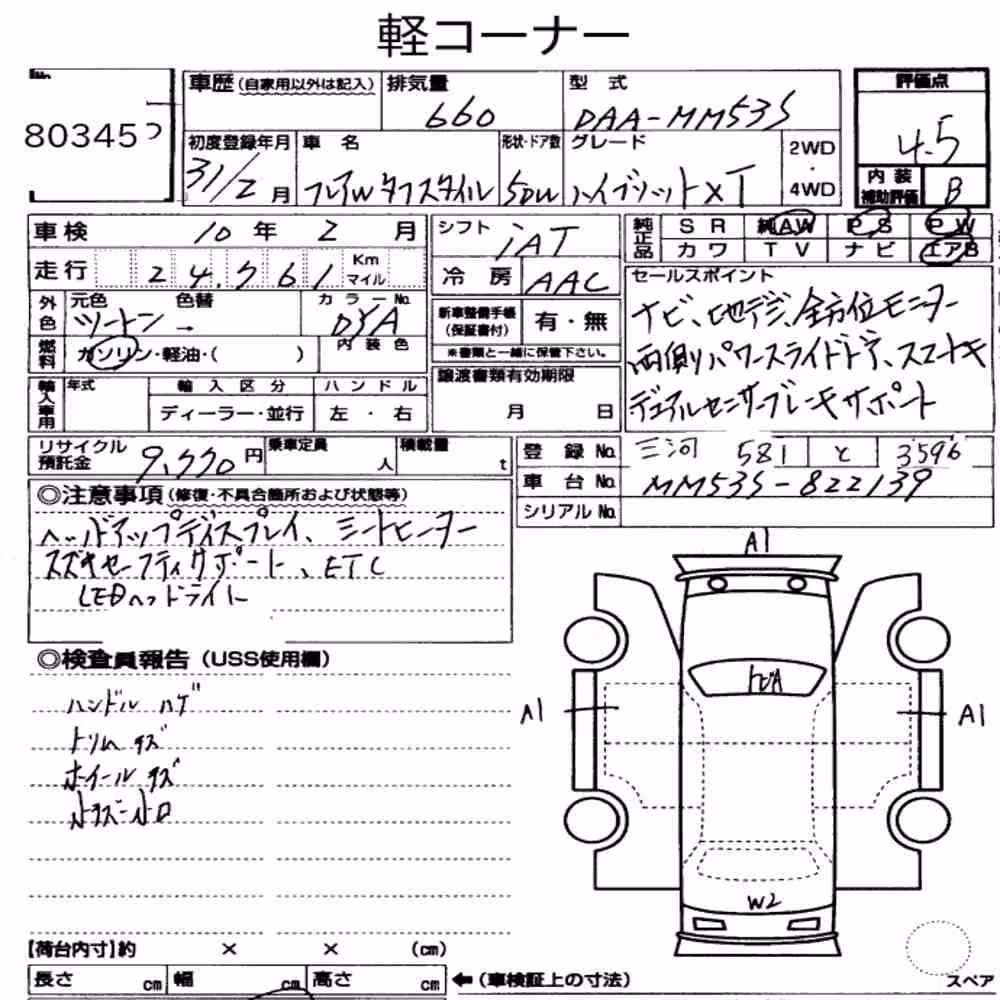 軽コーナー
No.
80345
車歴 (自家用以外は記入) 排気量 型式 評価点
660 DAA-MM53S 4.5
初度登録年月 車名 形状・ドア数 グレード 2WD・4WD 内装補助評価 B
31/2月 フレアW タフスタイル 5DW ハイブリットXT
車検 10年 2月 シフト iAT 純正品 SR 純AW PS PW
走行 24,761 Km マイル 冷房 AAC カワ TV ナビ エアB
外色 元色 色替 カラーNo. 新車整備手帳(保証書付) 有・無 セールスポイント
ツートン → DYA ナビ、地デジ、全方位モニター
燃料 ガソリン・軽油・( ) 内装色 ※書類と一緒に保管下さい。
両側パワースライドドア、スマートキ
輸入車用 年式 輸入区分 ハンドル 譲渡書類有効期限
デュアルセンサーブレーキサポート
ディーラー・並行 左・右 月 日
リサイクル預託金 9,770円 乗車定員 人 積載量 t 登録No. 三河 581 と 3596
車台No. MM53S-822139
◎注意事項(修復・不具合箇所および状態等) シリアルNo.
ヘッドアップディスプレイ、シートヒーター
スズキセーフティサポート、ETC
LEDヘッドライト
A1
◎検査員報告(USS使用欄)
ハンドル ハゲ
トリム キズ
ホイール キズ
小キズ 小凹
トビA
A1
A1
W2
【荷台内寸】約 × × (cm)
長さ cm 幅 cm 高さ cm ←(車検証上の寸法) スペア